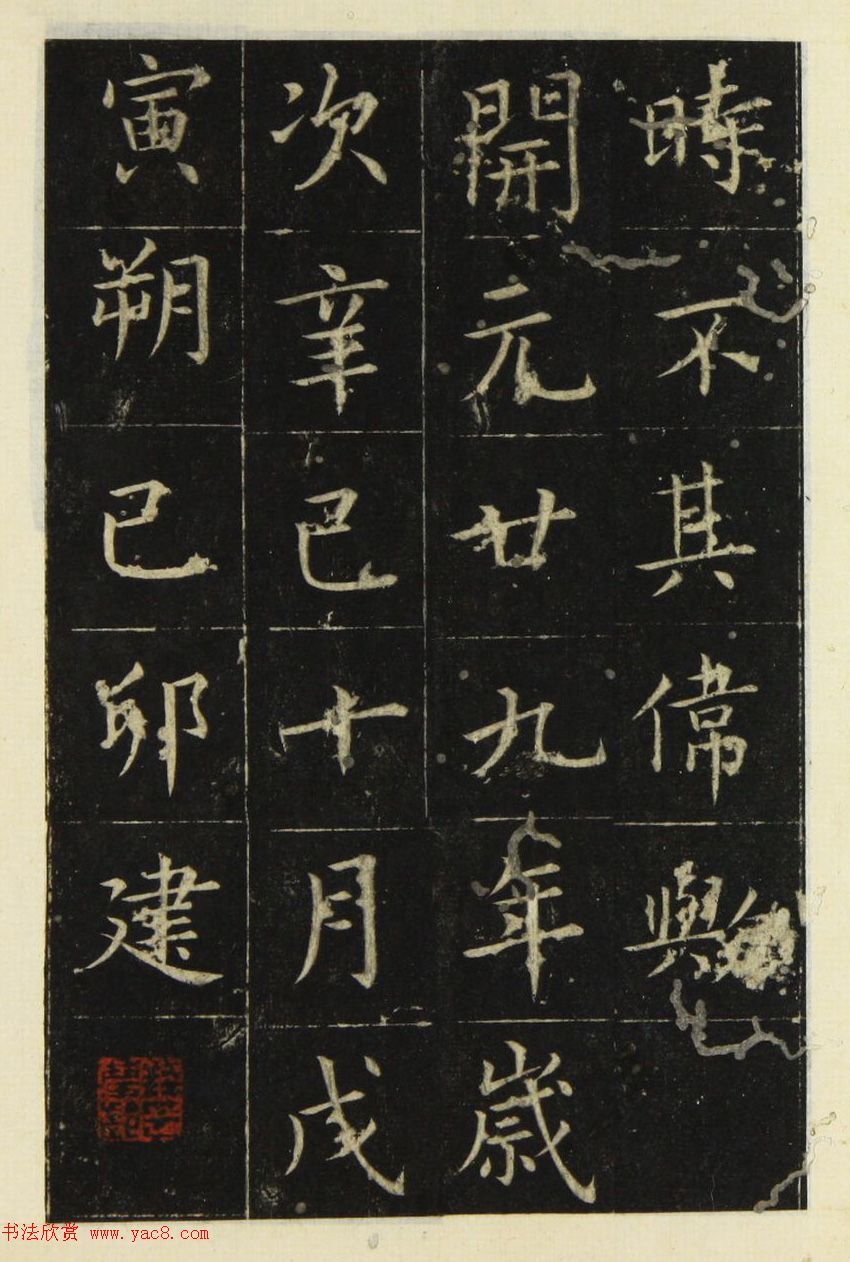 時不其偉歟
開元廿九年歲
次辛巳十月戊
寅朔己卯建
书法欣赏 www.yac8.com